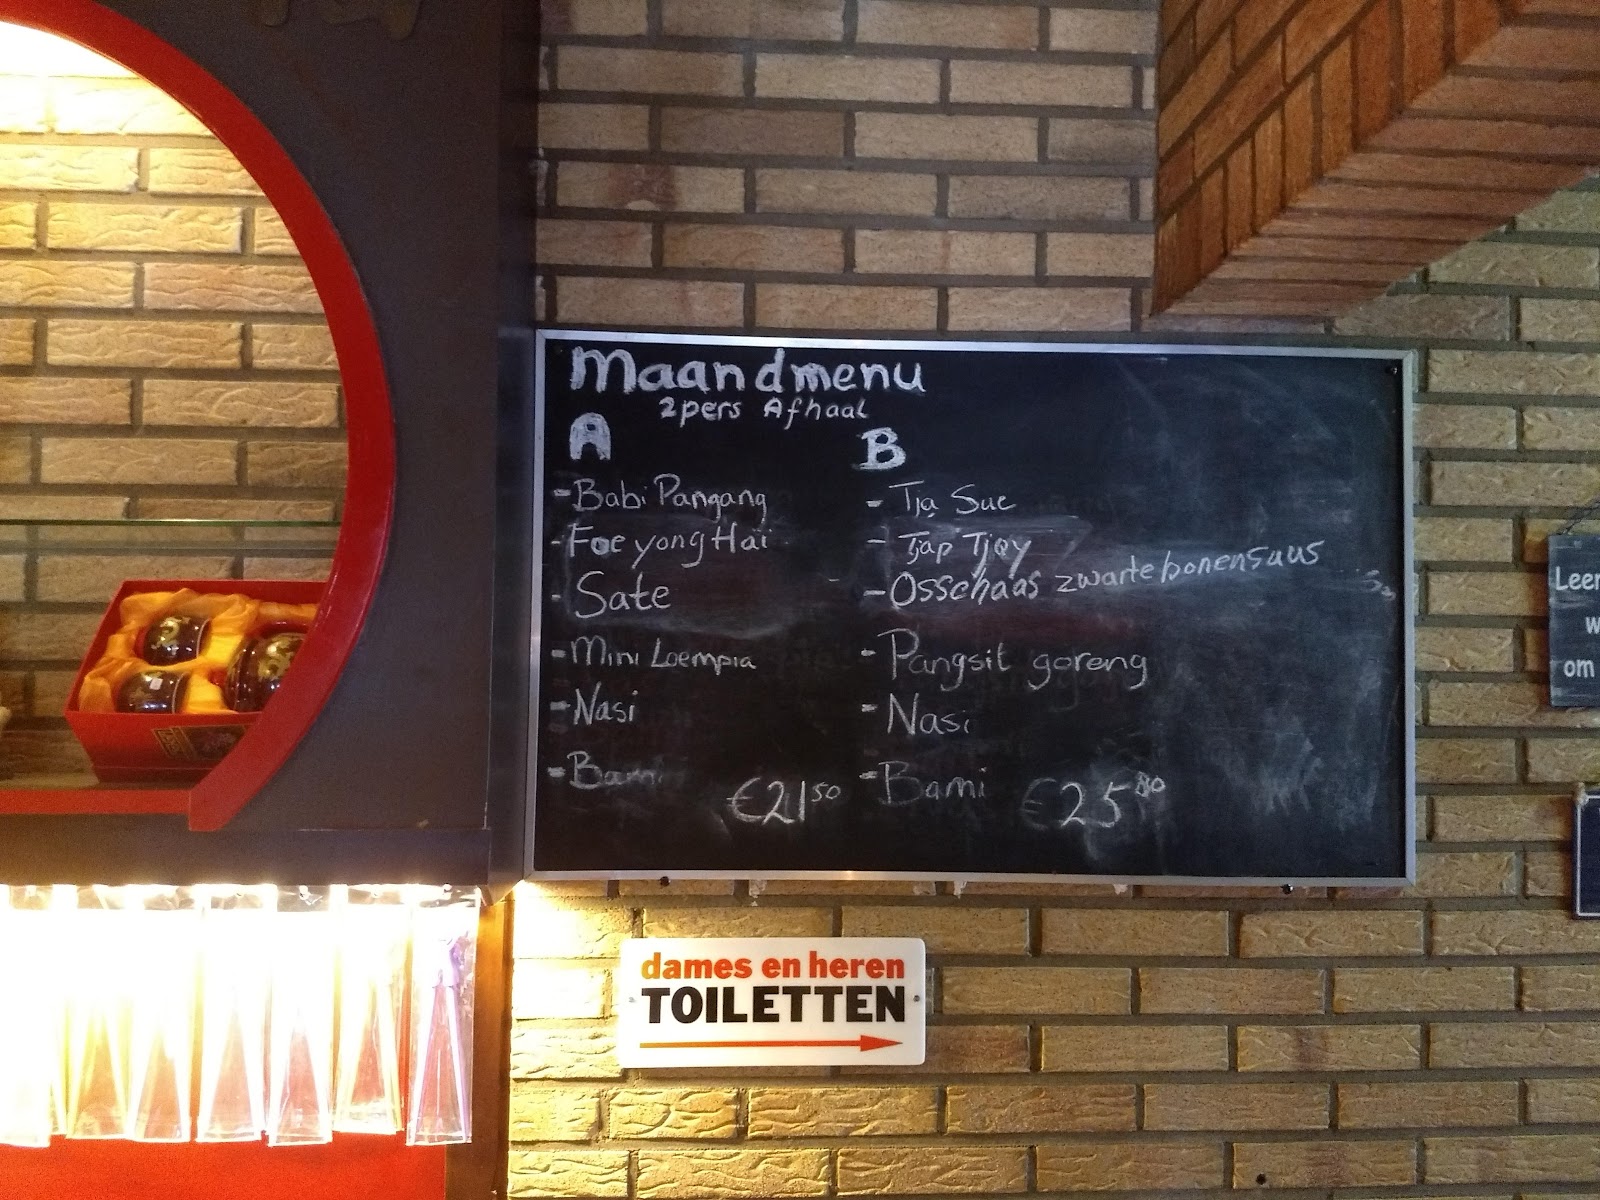 Maandmenu
2pers Afhaal
A
- Babi Pangang
- Foe yong Hai
- Sate
- Mini Loempia
- Nasi
- Bami
€2150
B
- Tja Sue
- Tjap Tjoy
- Osschaas zwartebonensaus
- Pangsit goreng
- Nasi
- Bami
€25
dames en heren
TOILETTEN
om